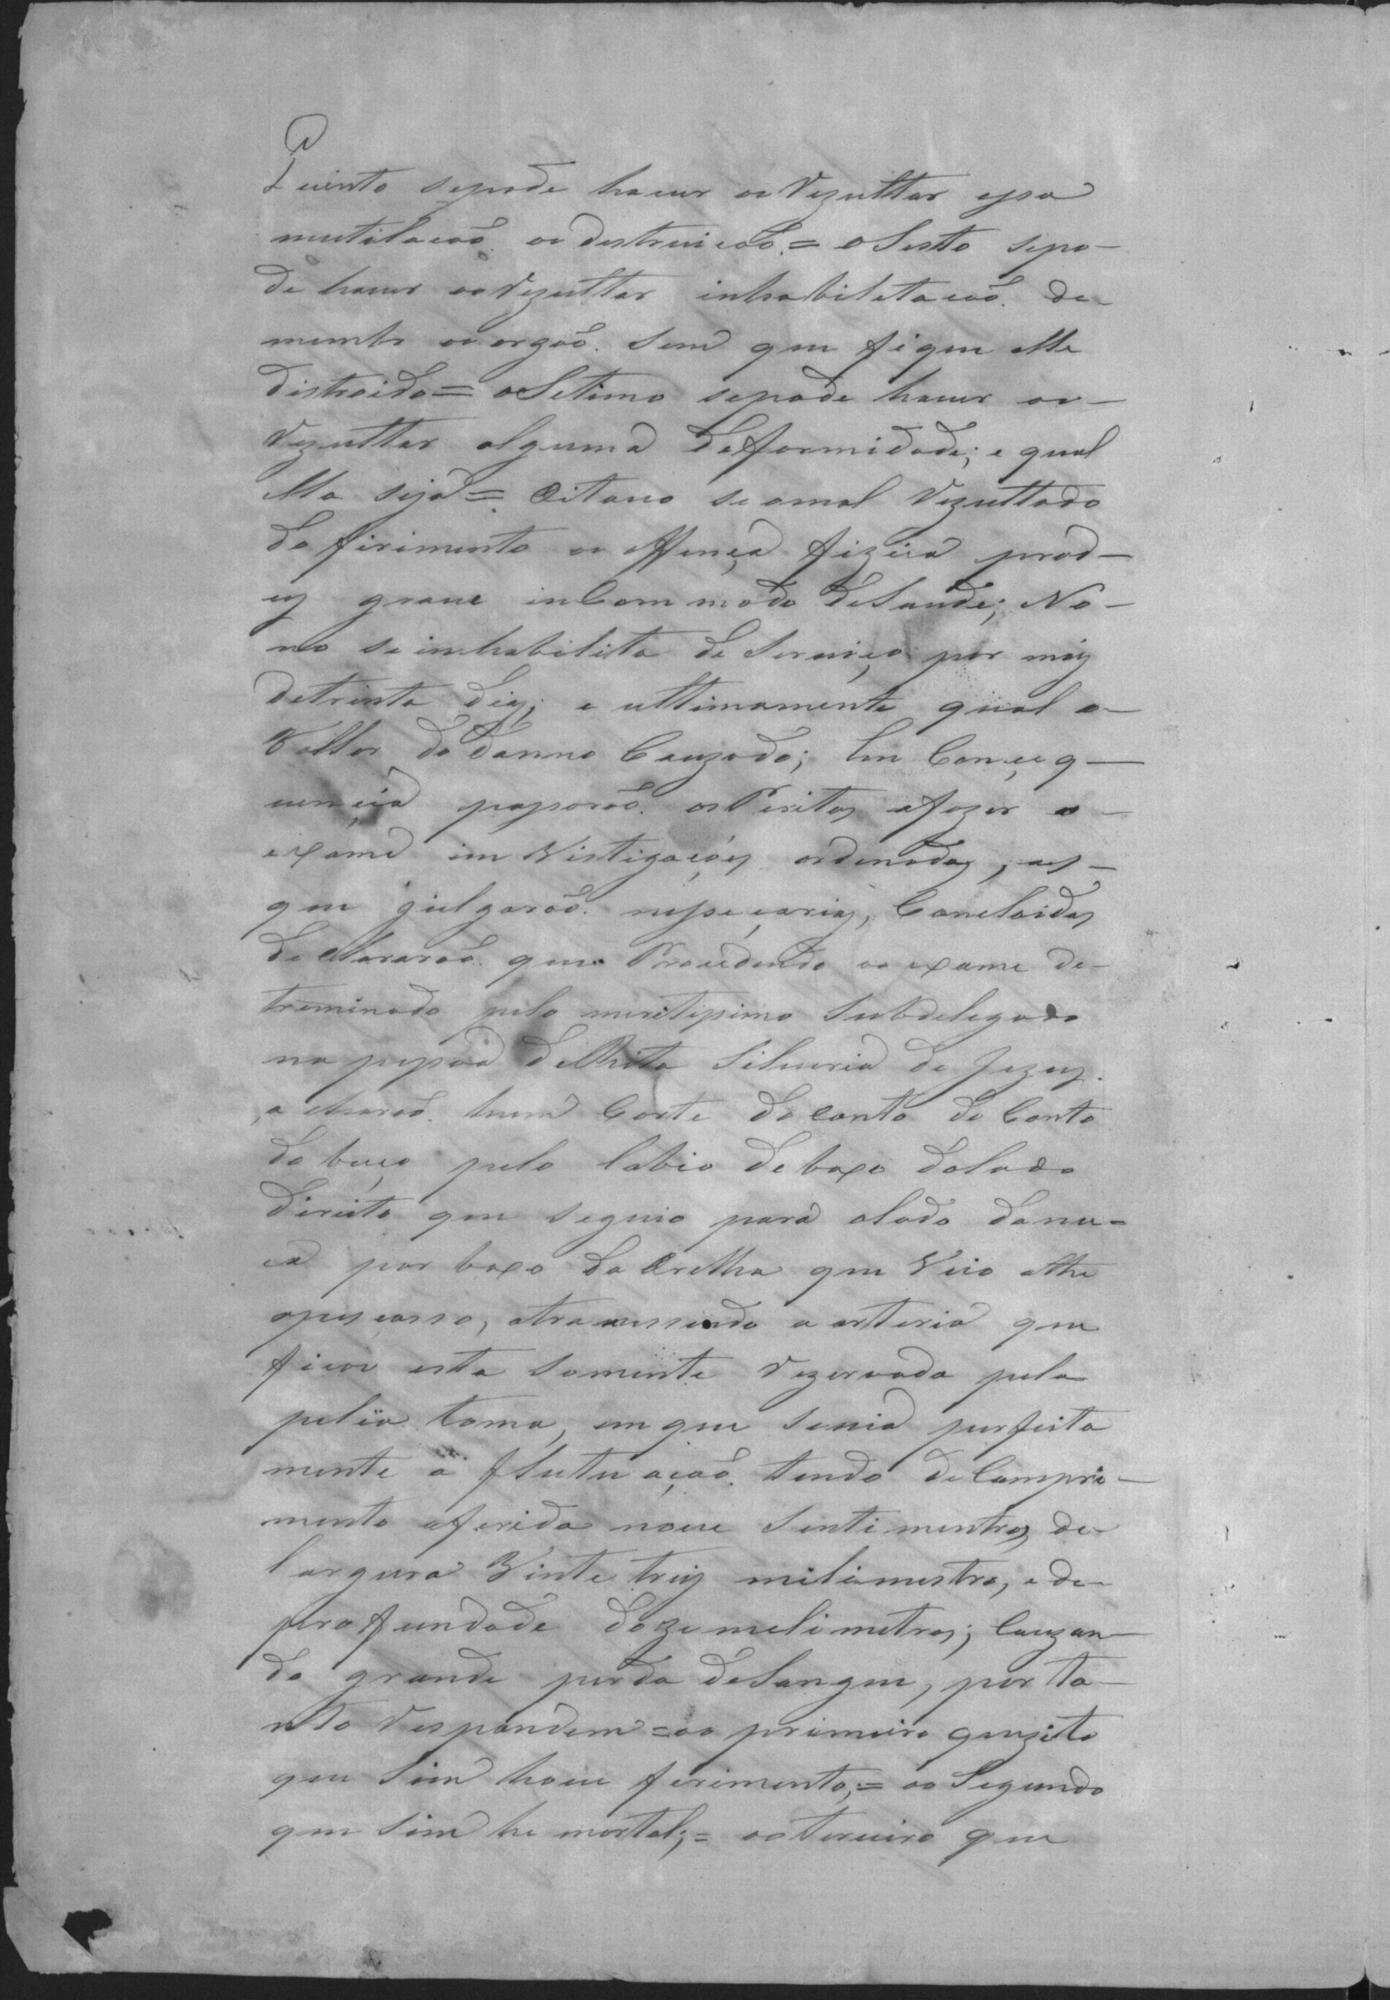 Quinto sepode haver ou Rezultar essa
mutilacaõ ou destruicaõ = o Sesto sepo-
de haver ou Rezultar inhabilitacaõ de
membro ou orgaõ sem que fique elle
distroido = o Setimo sepode haver ou-
Rezultar alguma deformidade; e qual
ella seja = Oitavo se o mal Rezultado
do firimento ou offença fizica prod-
uz grave inCommodo deSaude; No-
no se inhabilita de Serviço por maiz
detrinta diaz; e ultimamente qual o-
Vallor do danno Cauzado; Em Conçeq-
uençia passaraõ os Peritos afazer o-
exame im Vistigaçoẽs ordenadas, as-
que julgaraõ nesseçarias, Concloidas
declararaõ que Procedendo ao exame de-
treminado pelo meritissimo Subdelegado
na pessoa deRita Silveria de Jezus
acharaõ hum Corte do canto do Canto
da boca pelo labio debaxo dolado
direito que seguio para olado danu-
ca por baxo da Orelha que Veio athe
opescosso, atravessando a arteria que
ficou esta somente Rezervada pela
pelica toma, em que sevia perfeita
mente a flutuaçaõ tendo deCompri-
mento aferida nove Sentimentros, de-
largura Vinte treis milimestros, e de-
profundade doze melimetros; Cauzan-
do grande perda deSangue, por ta-
nto Respondem = ao primeiro quezito
que Sim houve ferimento; = ao Segundo
que Sim he mortal; = ao terceiro que